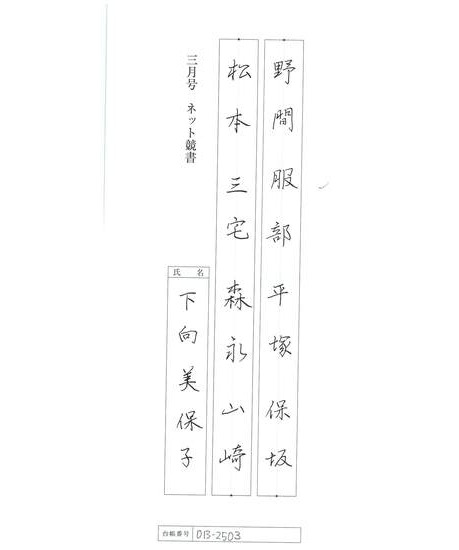 野間 服部 平塚 保坂
松本 三宅 森永 山崎
三月号 ネット競書
氏名
下向美保子
台帳番号 DB-2503